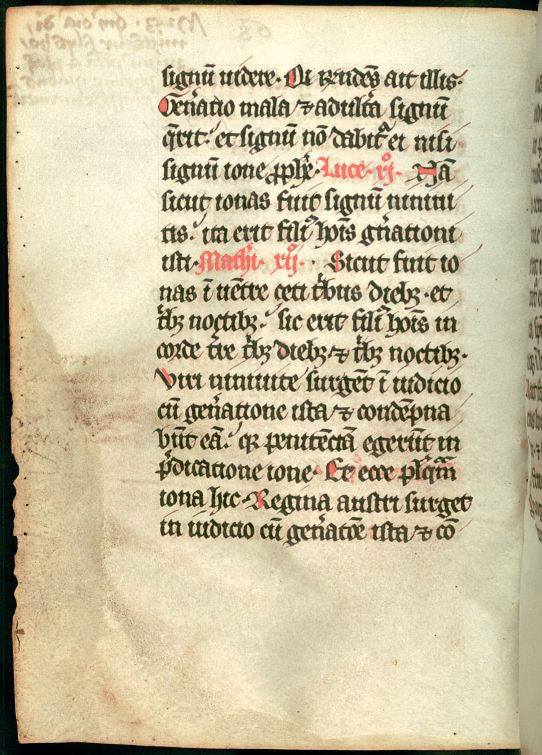 signū uidere. Qi rn̄dēs ait illis.
Gen̄atio mala ⁊ adult̄a signū
q̄rit. et signū nō dabit᷑ ei nisi
signū ione ꝓph̄e. Luce. xj. Nā
sicut ionas fuit signū niniui
tis. ita erit filiꝰ hoīs gn̄ationi
isti. Mathi. xij. Sicut fuit io
nas ī uētre ceti t̄bus diebꝫ. et
t̄bꝫ noctibꝫ. sic erit filiꝰ hoīs in
corde t̄re t̄bꝫ diebꝫ ⁊ t̄bꝫ noctibꝫ.
Viri niniuite surgēt ī iudicio
cū gen̄atione ista ⁊ condēpna
būt eā. qꝛ penitēciā egerūt in
p̄dicatione ione. Et ecce plꝰq̄m
iona hic. Regina austri surget
in iudicio cū gen̄atōe ista ⁊ cō